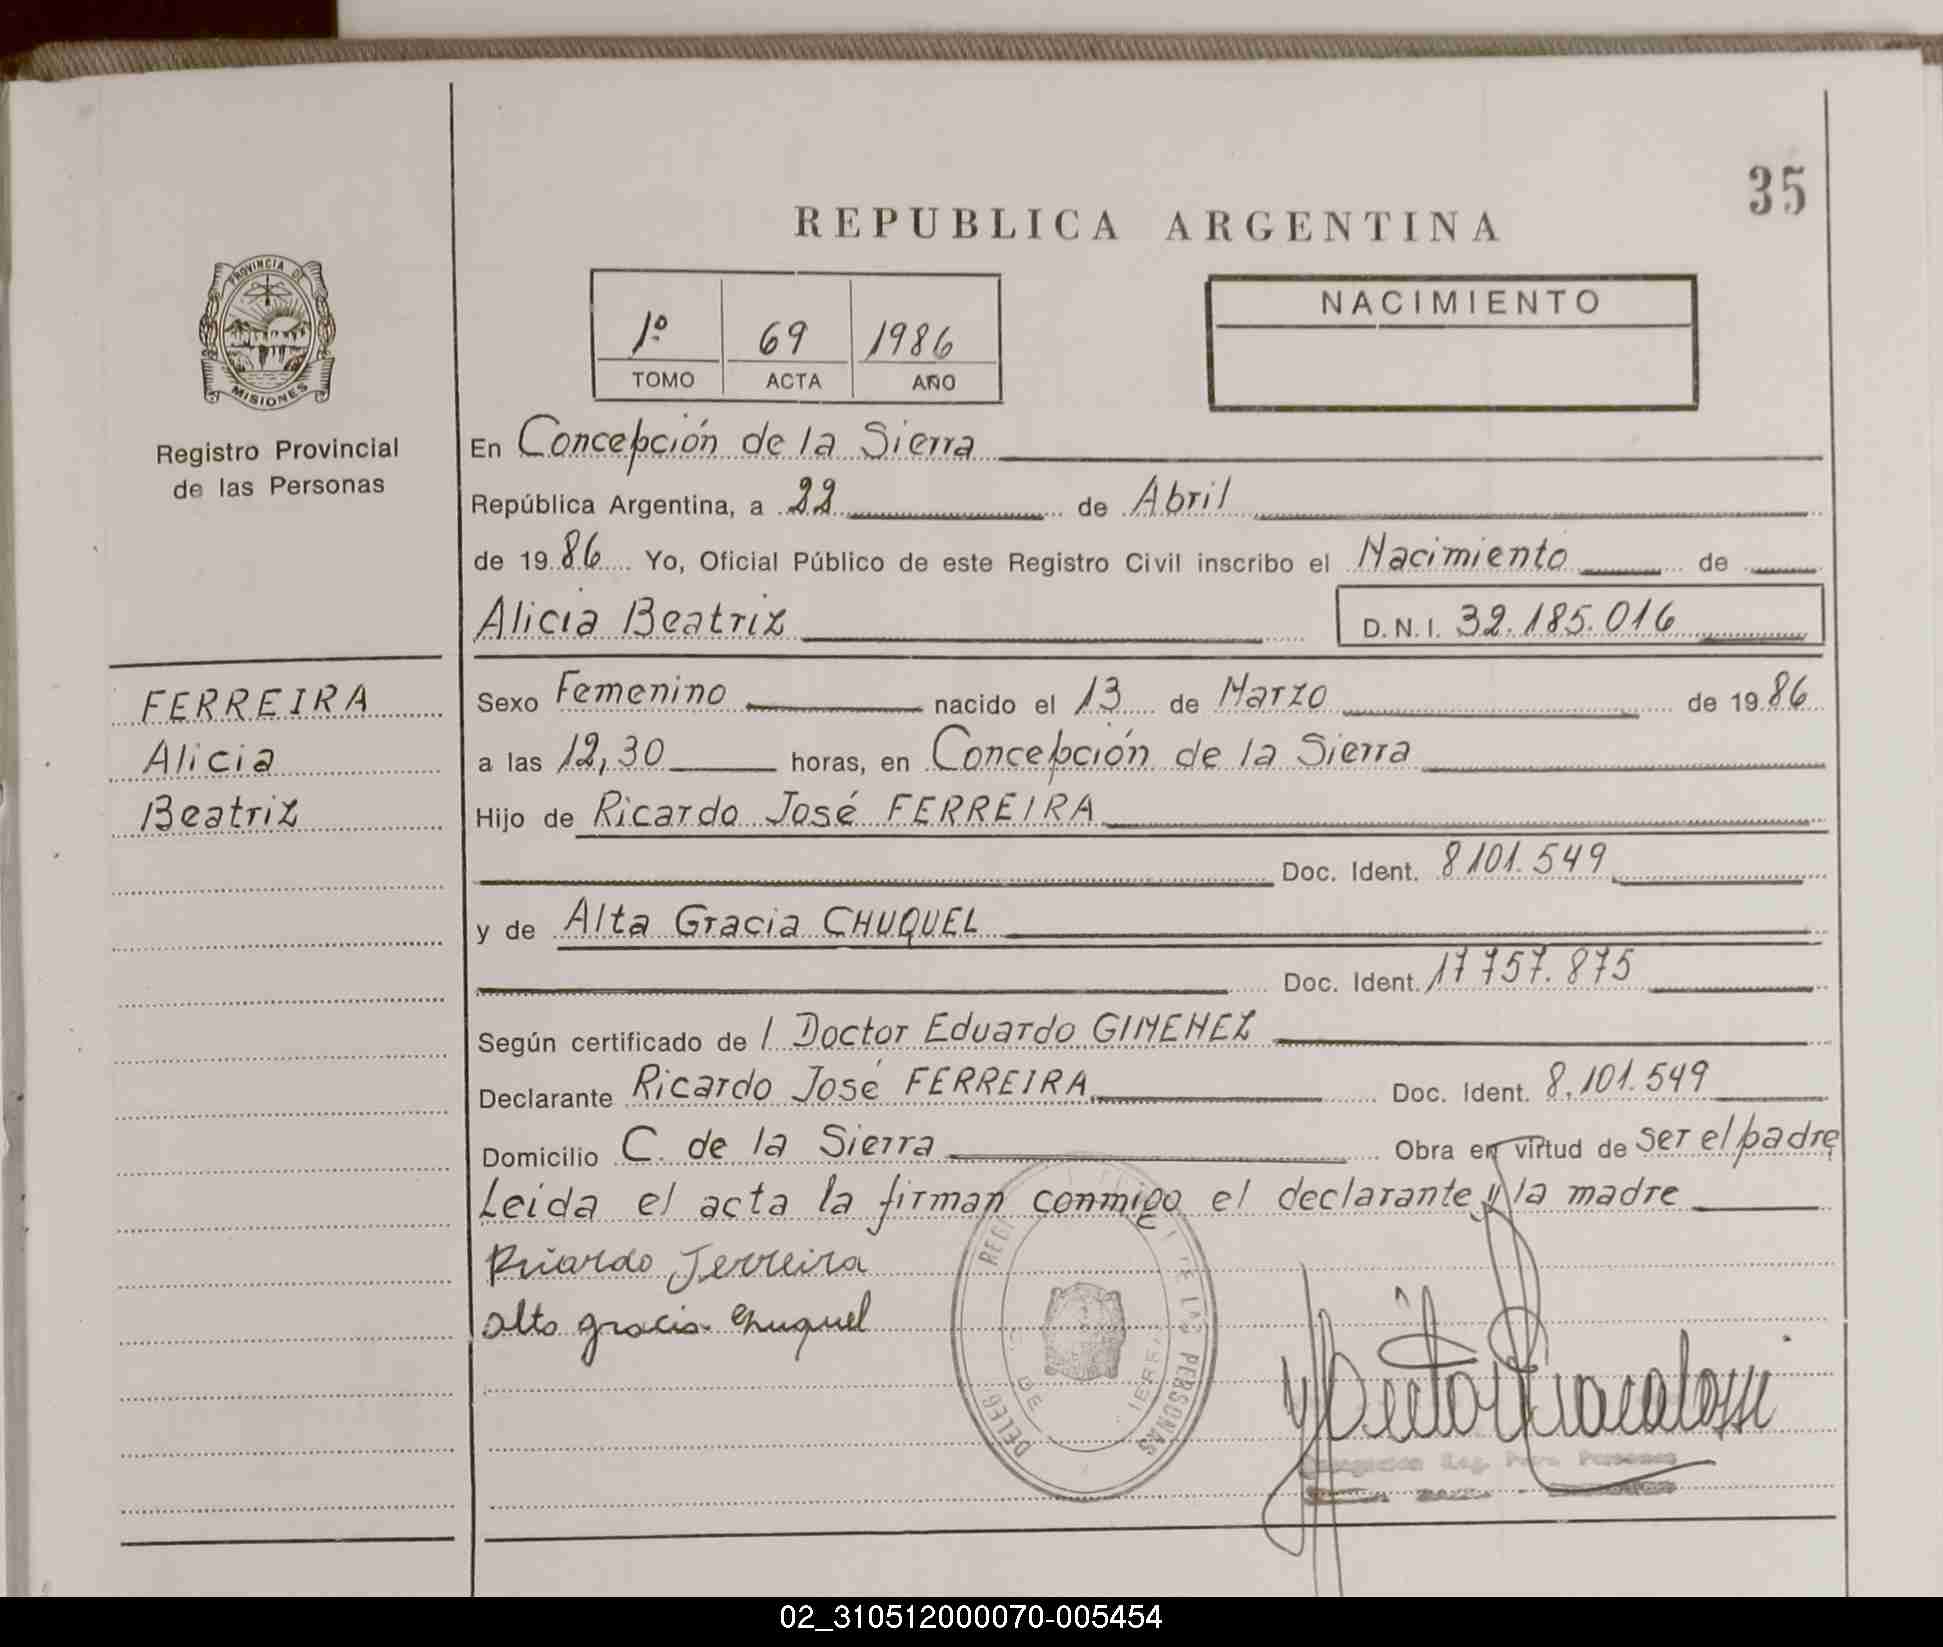 35
REPUBLICA ARGENTINA
PROVINCIA DE
MISIONES
Registro Provincial
de las Personas
1º 69 1986
TOMO ACTA AÑO
NACIMIENTO
En Concepción de la Sierra
República Argentina, a 22 de Abril
de 1986 Yo, Oficial Público de este Registro Civil inscribo el Nacimiento de
Alicia Beatriz D.N.I. 32.185.016
FERREIRA
Alicia
Beatriz
Sexo Femenino nacido el 13 de Marzo de 1986
a las 12,30 horas, en Concepción de la Sierra
Hijo de Ricardo José FERREIRA
Doc. Ident. 8101.549
y de Alta Gracia CHUQUEL
Doc. Ident. 17757.875
Según certificado de l Doctor Eduardo GIMENEZ
Declarante Ricardo José FERREIRA Doc. Ident. 8.101.549
Domicilio C. de la Sierra Obra en virtud de ser el padre
Leida el acta la firman conmigo el declarante y la madre
Ricardo Ferreira
alta gracia chuquel
DE LAS PERSONAS
02_310512000070-005454